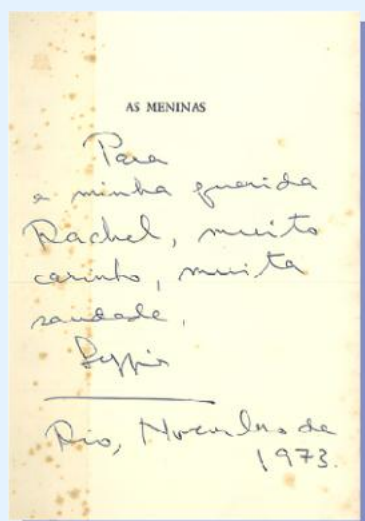 AS MENINAS
Para
a minha querida
Rachel, muito
carinho, muita
saudade,
Lygia
Rio, Novembro de
1973.